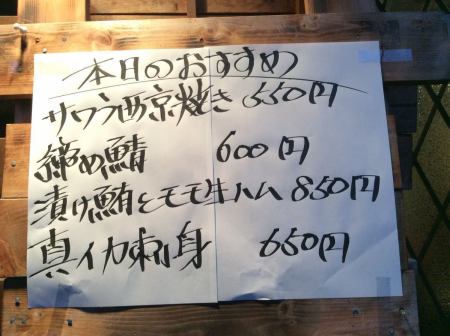 本日のおすすめ
サワラ西京焼き 550円
締め鯖 600円
漬け鮪とモモ生ハム 850円
真イカ刺し身 650円